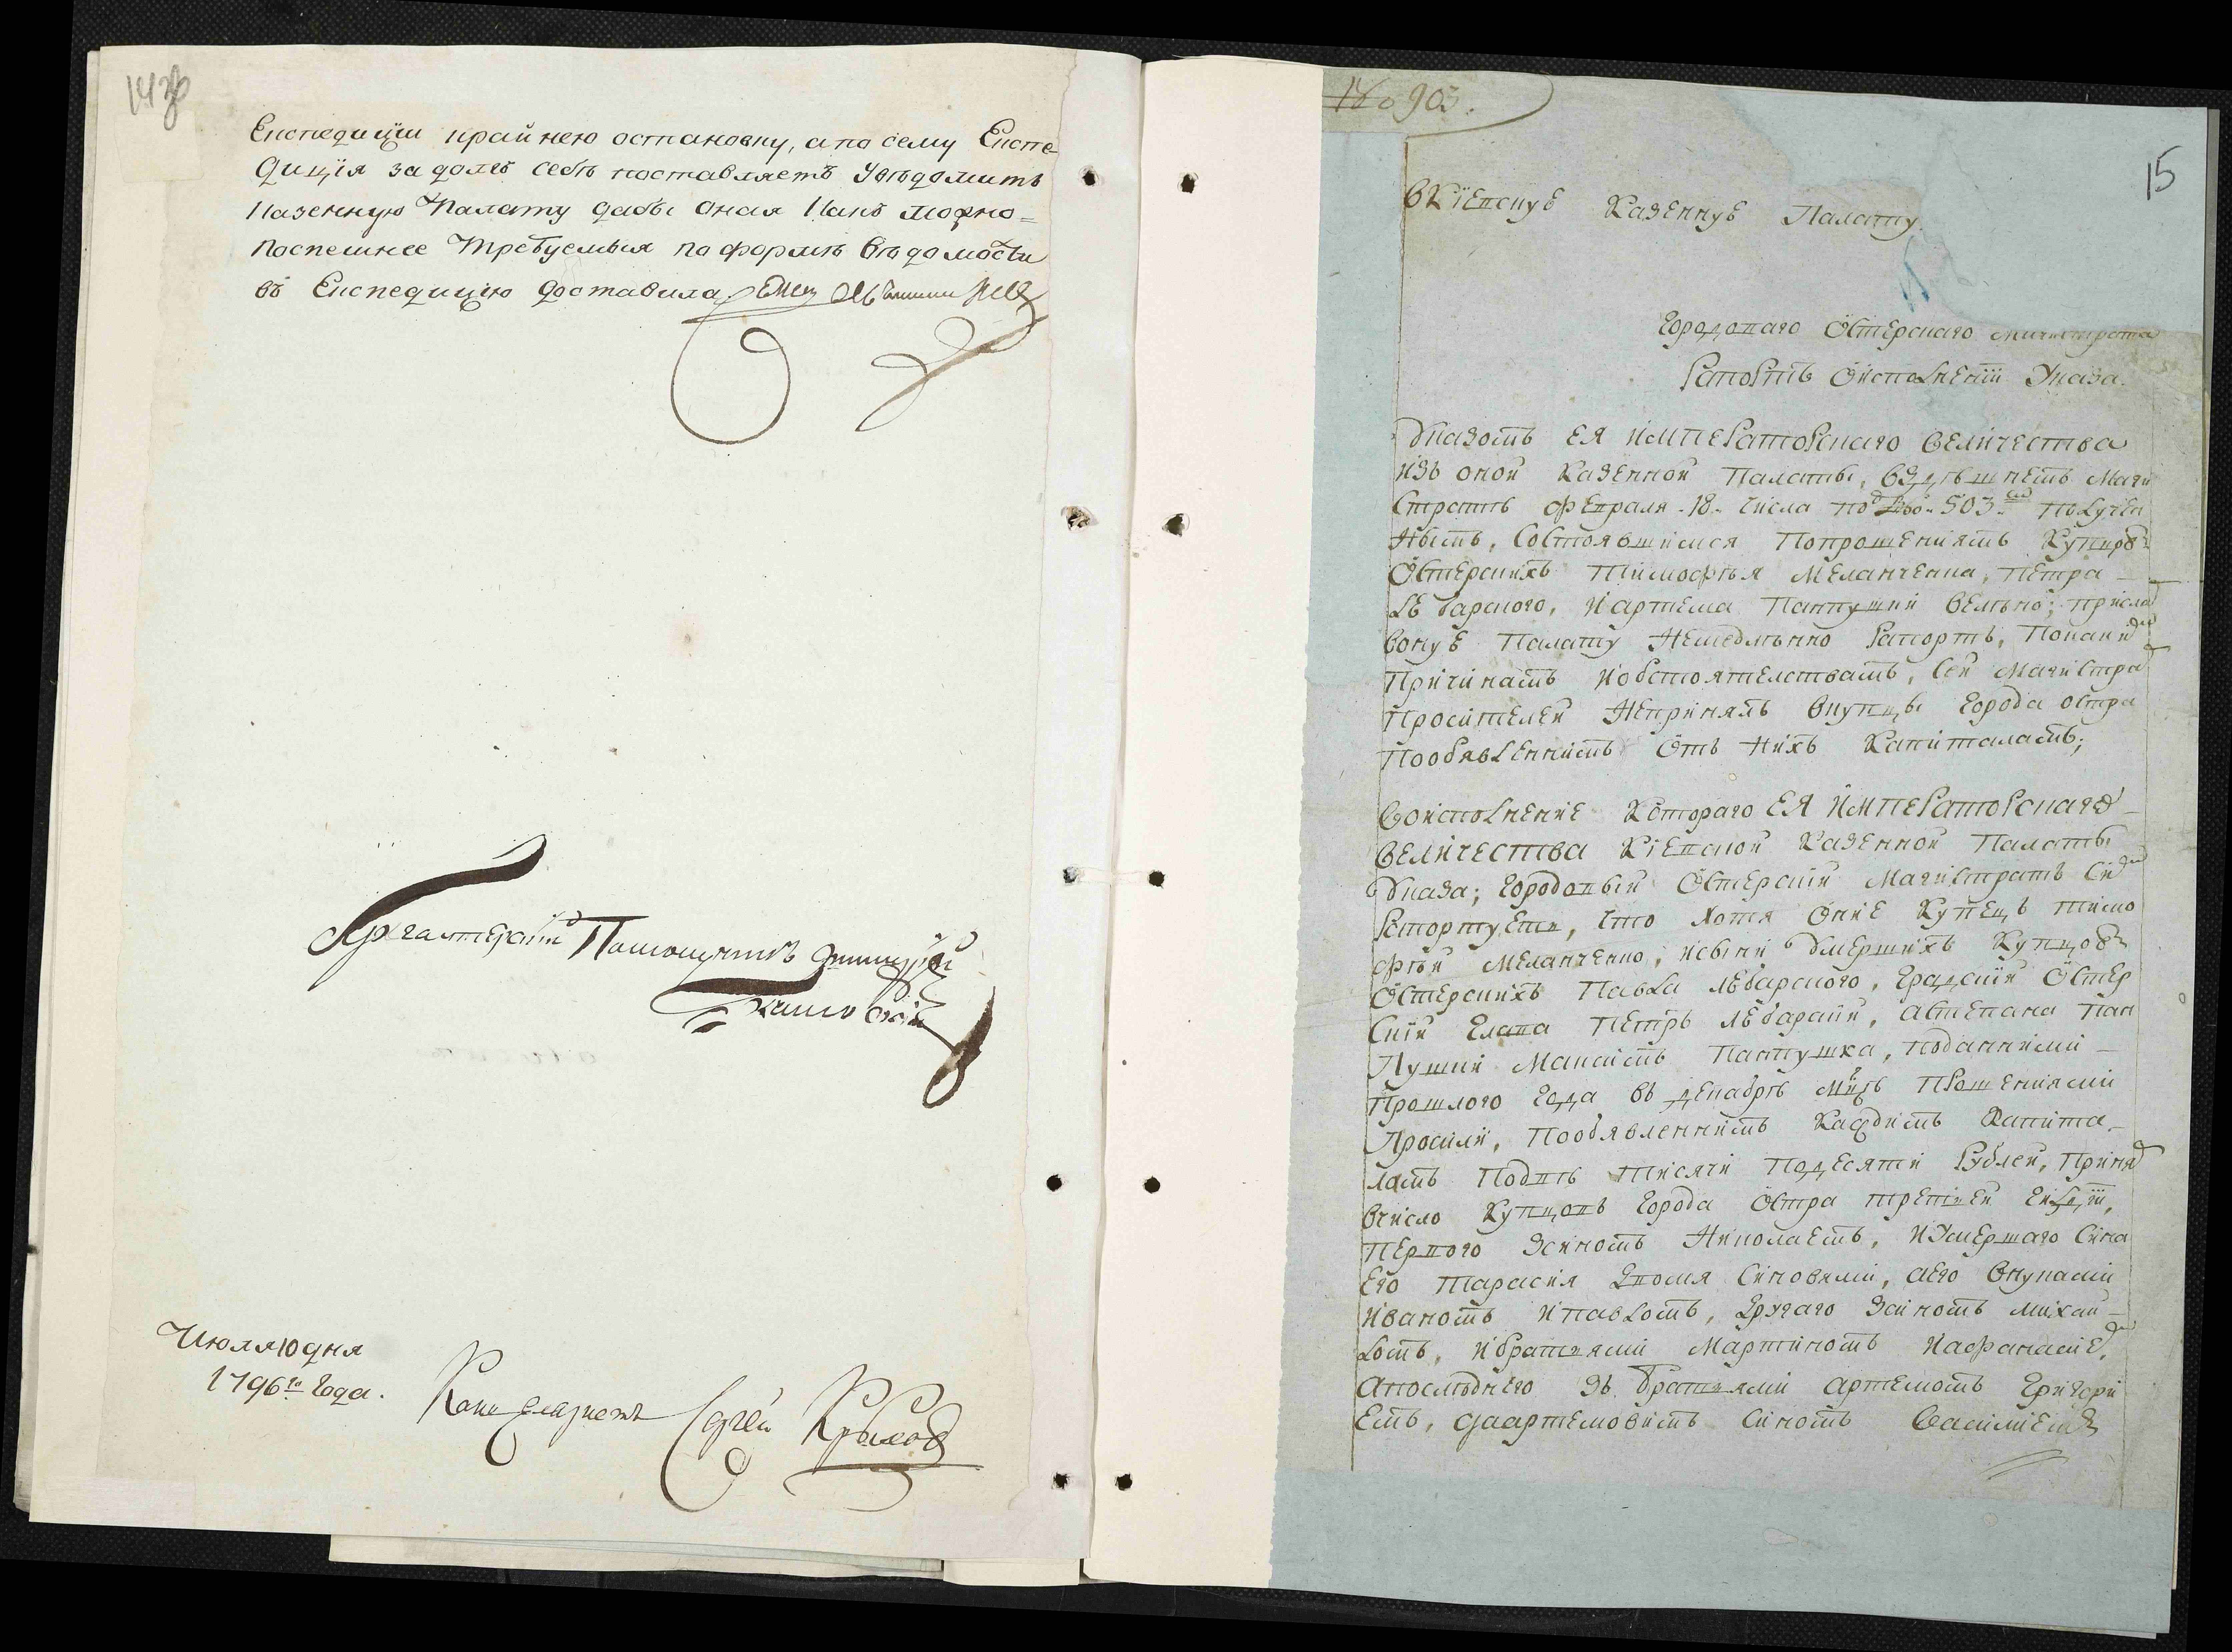 14 зв
Експедиціи крайнею остановку, а по сему Експе-
диція за долгъ себѣ поставляетъ увѣдомить
Казенную Палату дабы оная какъ можно-
поспешнее требуемыя по формѣ вѣдомости
въ Експедицію доставила.
Бухгалтерскій Помощникъ
Июля 10 дня
1796го года.
Канцеляристъ Сергей Крылов
№ 903.
15
В Кіевскуѣ Казеннуѣ Палату.
Городоваго Остерскаго Магистрата
Рапортъ о исполненіи Указа.
Указомъ ЕЯ ИМПЕРАТОРСКАГО ВЕЛИЧЕСТВА
изъ оной Казенной Палаты, вздѣшнемъ Маги
стратѣ февраля 18. числа под №о 503м получен
нымъ, состоявшимся попрошениямъ купцовъ
Остерскихъ Тимофѣя Меланченка, Петра
Лѣбарского, и Артема Паптушки велѣно; присла
вонуѣ Палату немедлѣнно рапортъ, покаким
причинамъ иобстоятелствамъ, сей Магистра
просителей непринялъ вкупцы города Остра
пообявленнимъ отъ нихъ капиталамъ;
Воисполнение котораго ЕЯ ИМПЕРАТОРСКАГО
ВЕЛИЧЕСТВА Кіевской Казенной Палаты
Указа; городовый Остерский Магистратъ сим
рапортуетъ, что хотя оние купецъ Тимо
фѣй Меланченко, исыни умершихъ купцовъ
Остерскихъ Павла Лѣбарского, градский Остер
ский глава Петръ Лѣбарский, аСтепана Пап
тушки Максимъ Паптушка, поданними
прошлого года въ декабрѣ мцѣ прошениями
просили, пообявленнимъ каждимъ капита-
ламъ подвѣ тисячи подесяти рублей, приня
вчисло купцовъ города Остра третей гилдіи,
первого зсиномъ Николаемъ, иумершаго сина
его Тарасия двома синовями, аего внуками
Иваномъ иПавломъ, другаго зсиномъ Михаи-
ломъ, ибратиями Мартиномъ иАфанасиемъ,
апослѣднего зъ братиями Артемомъ Григори
емъ, даартемовимъ синомъ Василиемъ